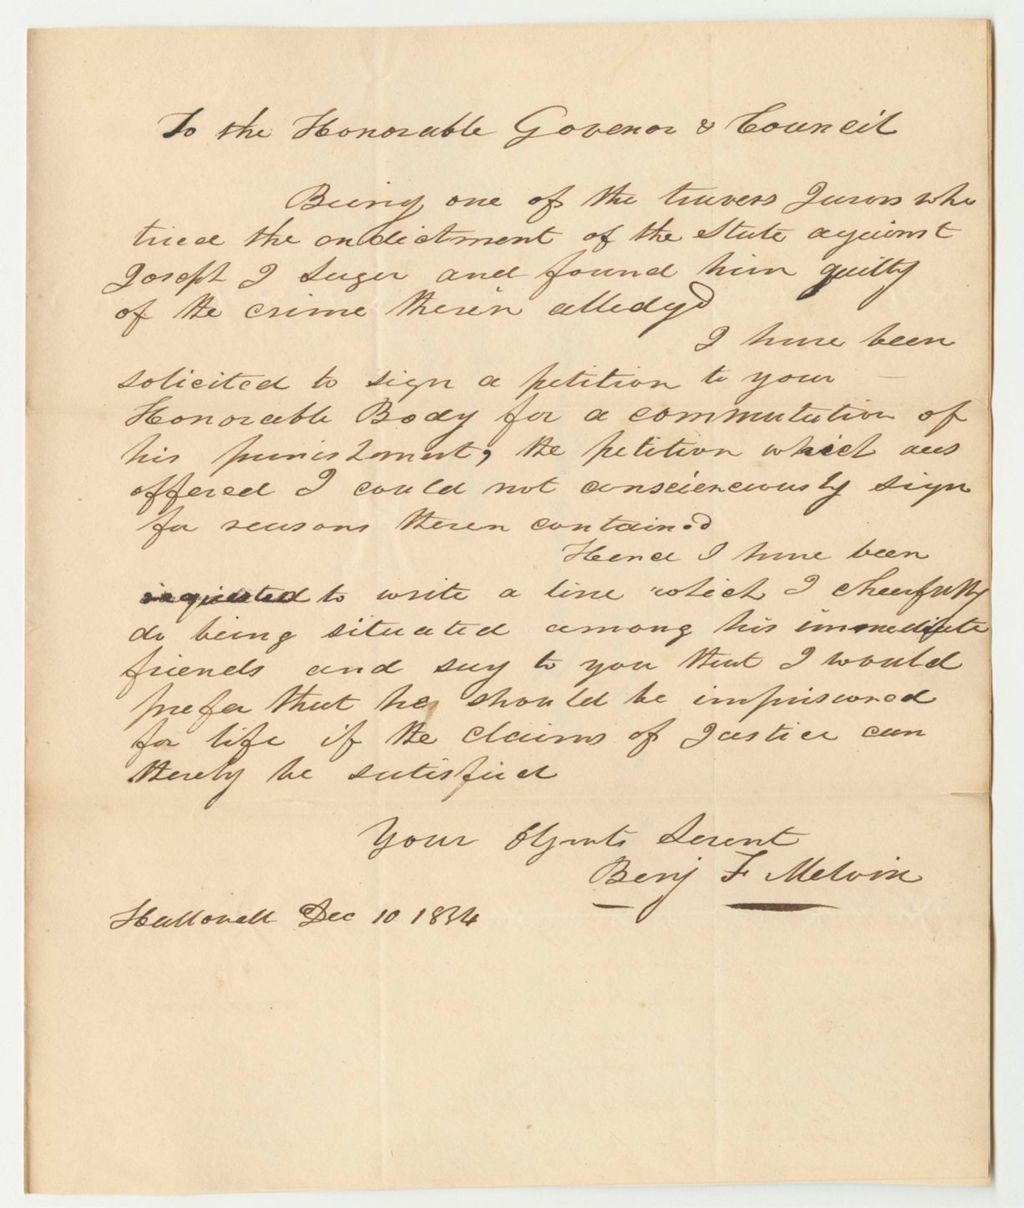 To the Honorable Govenor & Council
Being one of the travers Jurors who
tried the ondictment of the State against
Joseph J Sager and found him guilty
of the crime therein alledgd
I have been
solicited to sign a petition to your
Honorable Body for a commutation of
his punishment, the petition which was
offered I could not conscienciously sign
for reasons theren contained
Hence I have been
requested to write a line which I cheerfully
do being situated among his immediate
friends and say to you that I would
prefer that he should be imprisoned
for life if the claims of Justice can
thereby be satisfied
Your Servent
Benj F Melvin
Hallowell Dec 10 1834